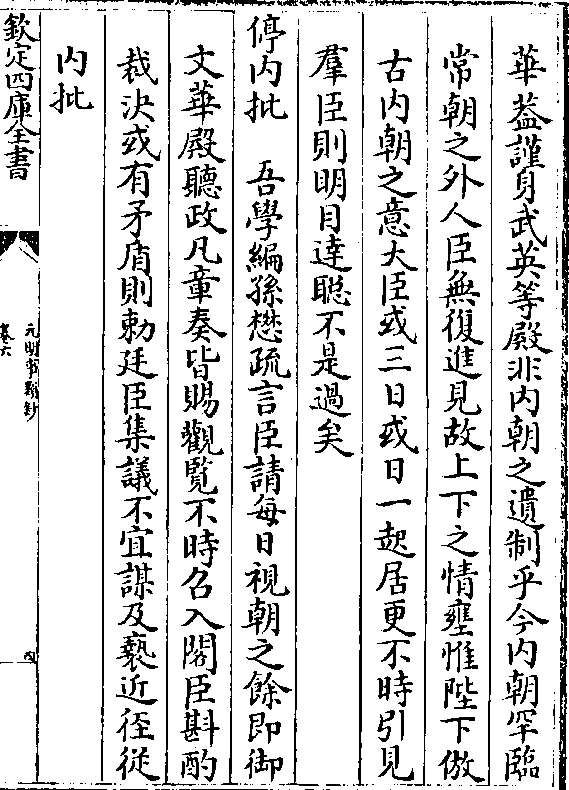 華葢謹身武英等殿非内朝之遺制乎今内朝罕臨
常朝之外人臣無復進見故上下之情壅惟陛下倣
古内朝之意大臣或三日或日一起居更不時引見
羣臣則明目達聰不是過矣
停内批　吾學編孫懋疏言臣請每日視朝之餘即御
文華殿聽政凡章奏皆賜觀覽不時名入閣臣斟酌
裁決或有矛盾則勅廷臣集議不宜謀及褻近徑從
内批
欽定四庫全書
元明事類鈔
卷六
四